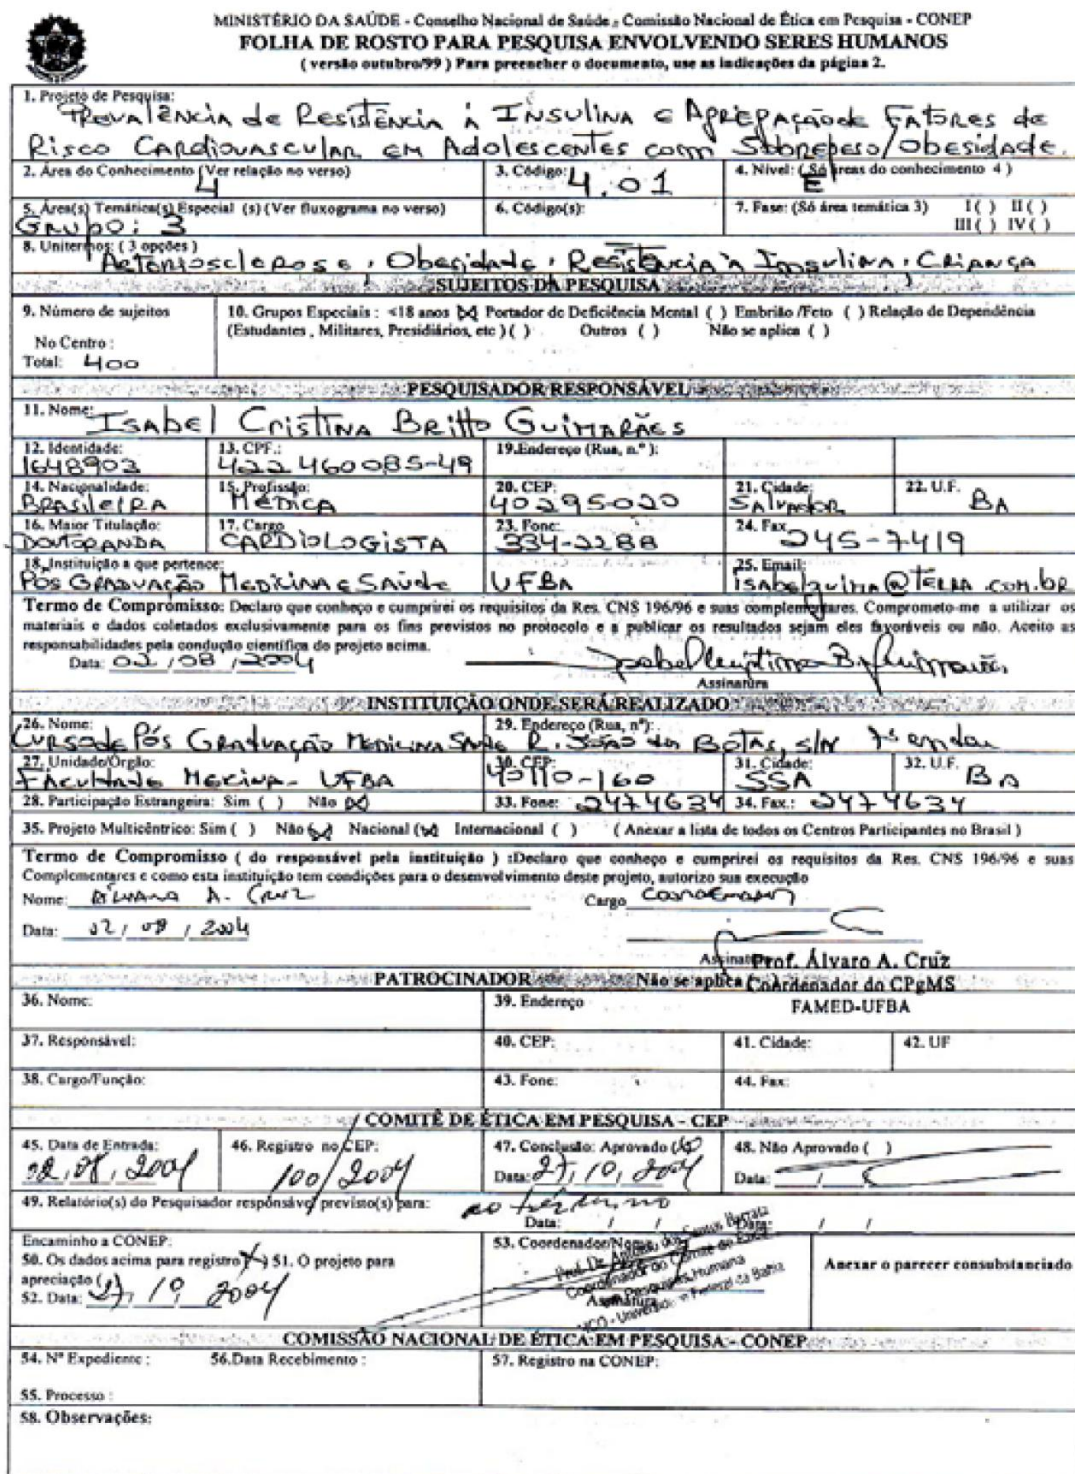 MINISTÉRIO DA SAÚDE - Conselho Nacional de Saúde - Comissão Nacional de Ética em Pesquisa - CONEP
FOLHA DE ROSTO PARA PESQUISA ENVOLVENDO SERES HUMANOS
( versão outubro/99 ) Para preencher o documento, use as indicações da página 2.
1. Projeto de Pesquisa:
Prevalência de Resistência à Insulina e Agregação de Fatores de
Risco Cardiovascular em Adolescentes com Sobrepeso/Obesidade.
2. Área do Conhecimento (Ver relação no verso) 4 3. Código: 4.01 4. Nível: ( Só áreas do conhecimento 4 ) E
5. Área(s) Temática(s) Especial (s) (Ver fluxograma no verso) Grupo: 3 6. Código(s): 7. Fase: (Só área temática 3) I ( ) II ( )
III ( ) IV ( )
8. Unitermos: ( 3 opções )
Aeteriosclerose, Obesidade, Resistência à Insulina, Criança
SUJEITOS DA PESQUISA
9. Número de sujeitos 10. Grupos Especiais : <18 anos (X) Portador de Deficiência Mental ( ) Embrião /Feto ( ) Relação de Dependência
(Estudantes , Militares, Presidiários, etc ) ( ) Outros ( ) Não se aplica ( )
No Centro :
Total: 400
PESQUISADOR RESPONSÁVEL
11. Nome: Isabel Cristina Britto Guimarães
12. Identidade: 1648903 13. CPF.: 422460085-49 19.Endereço (Rua, n.º ):
14. Nacionalidade: Brasileira 15. Profissão: Médica 20. CEP: 40295-020 21. Cidade: Salvador 22. U.F. BA
16. Maior Titulação: Doutoranda 17. Cargo Cardiologista 23. Fone: 334-2288 24. Fax 245-7419
18. Instituição a que pertence: Pós Graduação Medicina e Saúde UFBA 25. Email: isabelguima@terra.com.br
Termo de Compromisso: Declaro que conheço e cumprirei os requisitos da Res. CNS 196/96 e suas complementares. Comprometo-me a utilizar os
materiais e dados coletados exclusivamente para os fins previstos no protocolo e a publicar os resultados sejam eles favoráveis ou não. Aceito as
responsabilidades pela condução científica do projeto acima.
Data: 02 / 08 / 2004
Assinatura
INSTITUIÇÃO ONDE SERÁ REALIZADO
26. Nome: Curso de Pós Graduação Medicina Saúde 29. Endereço (Rua, nº): R. João das Botas, s/n 1º andar
27. Unidade/Órgão: Faculdade Mecina - UFBA 30. CEP: 40110-160 31. Cidade: SSA 32. U.F. BA
28. Participação Estrangeira: Sim ( ) Não (X) 33. Fone: 2474634 34. Fax.: 2474634
35. Projeto Multicêntrico: Sim ( ) Não (X) Nacional (X) Internacional ( ) ( Anexar a lista de todos os Centros Participantes no Brasil )
Termo de Compromisso ( do responsável pela instituição ) :Declaro que conheço e cumprirei os requisitos da Res. CNS 196/96 e suas
Complementares e como esta instituição tem condições para o desenvolvimento deste projeto, autorizo sua execução
Nome: A. Cruz Cargo
Data: 02 / 08 / 2004
Assinatura Prof. Álvaro A. Cruz
Coordenador do CPgMS
FAMED-UFBA
PATROCINADOR Não se aplica
36. Nome: 39. Endereço
37. Responsável: 40. CEP: 41. Cidade: 42. UF
38. Cargo/Função: 43. Fone: 44. Fax:
COMITÊ DE ÉTICA EM PESQUISA - CEP
45. Data de Entrada: 02, 08, 2004 46. Registro no CEP: 100/2004 47. Conclusão: Aprovado (X) Data: 27, 10, 2004 48. Não Aprovado ( ) Data: / /
49. Relatório(s) do Pesquisador responsável previsto(s) para: ao término
Data: / / Data: / /
Encaminho a CONEP:
50. Os dados acima para registro (X) 51. O projeto para
apreciação ( )
52. Data: 27, 10, 2004
53. Coordenador/Nome
Coordenador do Comitê de Ética
em Pesquisas Humana
Assinatura
Anexar o parecer consubstanciado
COMISSÃO NACIONAL DE ÉTICA EM PESQUISA - CONEP
54. Nº Expediente : 56.Data Recebimento : 57. Registro na CONEP:
55. Processo :
58. Observações: